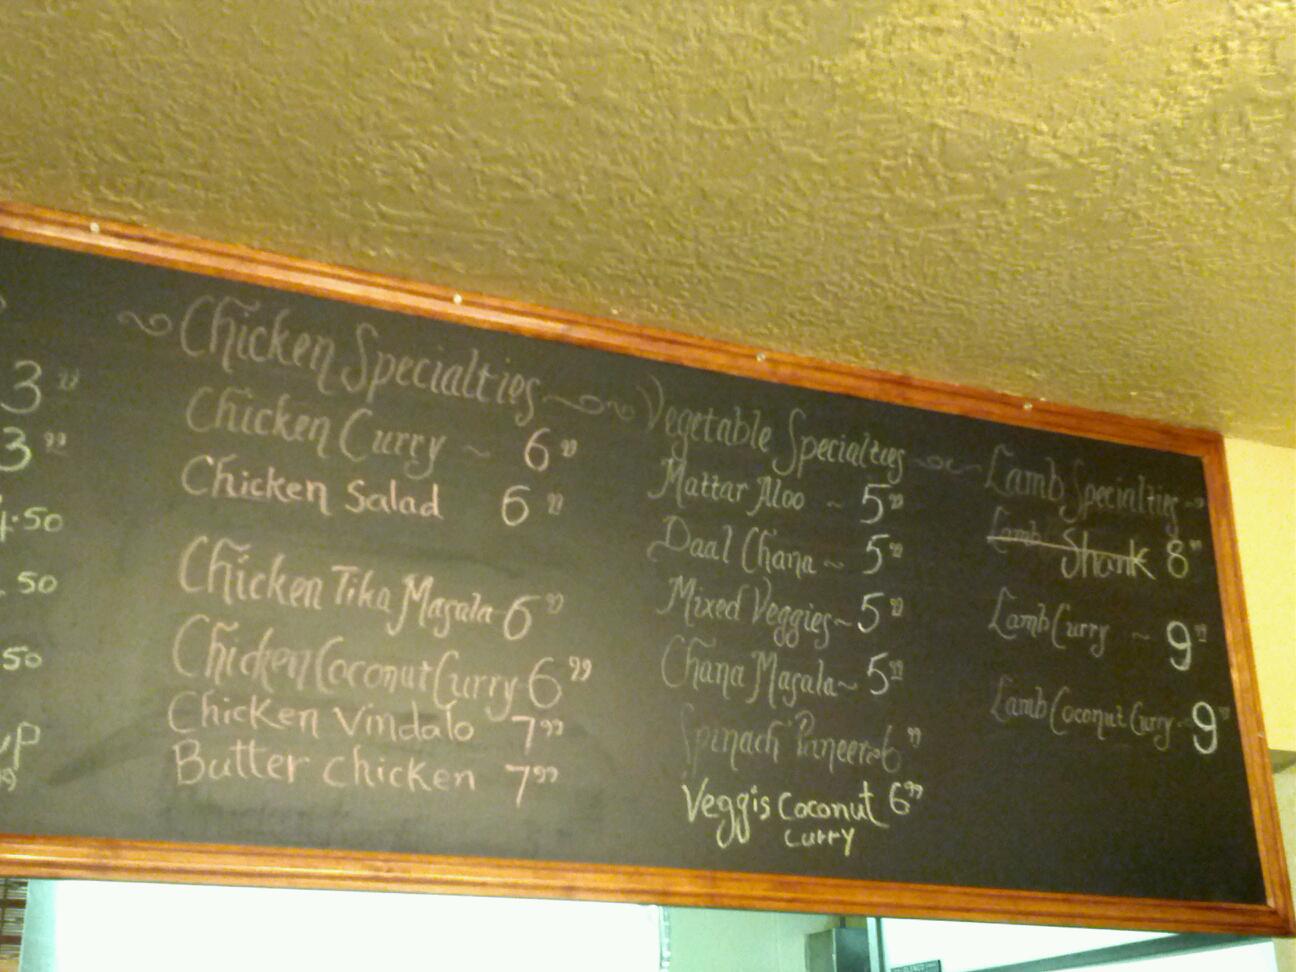 3 99
3 99
4.50
.50
.50
up
99
Chicken Specialties
Chicken Curry ~ 6 99
Chicken Salad 6 99
Chicken Tika Masala 6 99
Chicken Coconut Curry 6 99
Chicken Vindalo 7 99
Butter Chicken 7 99
Vegetable Specialties
Mattar Aloo ~ 5 99
Daal Chana ~ 5 99
Mixed Veggies ~ 5 99
Chana Masala ~ 5 99
Spinach Paneer 6 99
Veggis Coconut 6 99
Curry
Lamb Specialties
Lamb Shank 8 99
Lamb Curry ~ 9 99
Lamb Coconut Curry 9 99